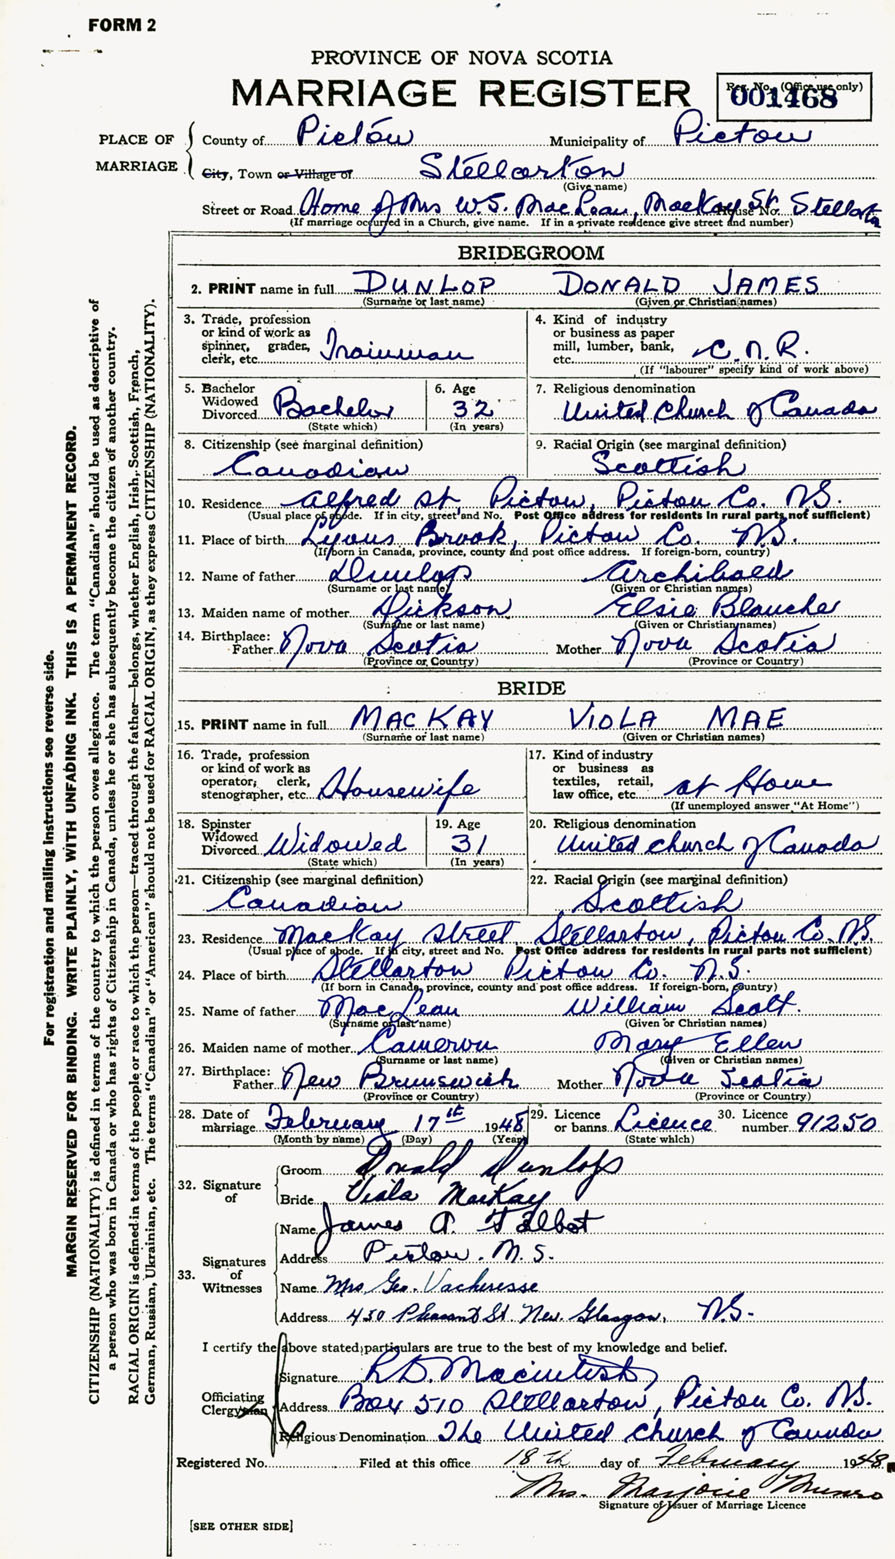 FORM 2
PROVINCE OF NOVA SCOTIA
MARRIAGE REGISTER
Reg. No. (Office use only)
001468
PLACE OF MARRIAGE
County of Pictou Municipality of Pictou
City, Town or Village of Stellarton
(Give name)
Street or Road Home of Mrs W.S. MacLean, MacKay St. House No. Stellarton
(If marriage occurred in a Church, give name. If in a private residence give street and number)
BRIDEGROOM
2. PRINT name in full DUNLOP DONALD JAMES
(Surname or last name) (Given or Christian names)
3. Trade, profession or kind of work as spinner, grader, clerk, etc. Trainman
4. Kind of industry or business as paper mill, lumber, bank, etc. C.N.R.
(If "labourer" specify kind of work above)
5. Bachelor Widowed Divorced Bachelor
(State which)
6. Age 32
(In years)
7. Religious denomination
United Church of Canada
8. Citizenship (see marginal definition)
Canadian
9. Racial Origin (see marginal definition)
Scottish
10. Residence Alfred St, Pictou, Pictou Co. N.S.
(Usual place of abode. If in city, street and No. Post Office address for residents in rural parts not sufficient)
11. Place of birth Lyons Brook, Pictou Co. N.S.
(If born in Canada, province, county and post office address. If foreign-born, country)
12. Name of father Dunlop Archibald
(Surname or last name) (Given or Christian names)
13. Maiden name of mother Dickson Elsie Blanche
(Surname or last name) (Given or Christian names)
14. Birthplace: Father Nova Scotia Mother Nova Scotia
(Province or Country) (Province or Country)
BRIDE
15. PRINT name in full MACKAY VIOLA MAE
(Surname or last name) (Given or Christian names)
16. Trade, profession or kind of work as operator, clerk, stenographer, etc. Housewife
17. Kind of industry or business as textiles, retail, law office, etc. at Home
(If unemployed answer "At Home")
18. Spinster Widowed Divorced Widowed
(State which)
19. Age 31
(In years)
20. Religious denomination
United Church of Canada
21. Citizenship (see marginal definition)
Canadian
22. Racial Origin (see marginal definition)
Scottish
23. Residence MacKay Street Stellarton, Pictou Co. N.S.
(Usual place of abode. If in city, street and No. Post Office address for residents in rural parts not sufficient)
24. Place of birth Stellarton Pictou Co. N.S.
(If born in Canada, province, county and post office address. If foreign-born, country)
25. Name of father MacLean William Scott.
(Surname or last name) (Given or Christian names)
26. Maiden name of mother Cameron Mary Ellen
(Surname or last name) (Given or Christian names)
27. Birthplace: Father New Brunswick Mother Nova Scotia
(Province or Country) (Province or Country)
28. Date of marriage February 17th 1948
(Month by name) (Day) (Year)
29. Licence or banns Licence
(State which)
30. Licence number 91250
32. Signature of
Groom Donald Dunlop
Bride Viola MacKay
33. Signatures of Witnesses
Name James A. Talbot
Address Pictou. N.S.
Name Mrs Geo. Vacheresse
Address 450 Pleasant St. New Glasgow, N.S.
I certify the above stated particulars are true to the best of my knowledge and belief.
Officiating Clergyman
Signature R.D. Macintosh
Address Box 510 Stellarton, Pictou Co. N.S.
Religious Denomination The United Church of Canada
Registered No. Filed at this office 18th day of February 1948.
Mrs. Marjorie Munro
Signature of Issuer of Marriage Licence
[SEE OTHER SIDE]
For registration and mailing instructions see reverse side.
MARGIN RESERVED FOR BINDING. WRITE PLAINLY, WITH UNFADING INK. THIS IS A PERMANENT RECORD.
CITIZENSHIP (NATIONALITY) is defined in terms of the country to which the person owes allegiance. The term "Canadian" should be used as descriptive of
a person who was born in Canada or who has rights of Citizenship in Canada, unless he or she has subsequently become the citizen of another country.
RACIAL ORIGIN is defined in terms of the people or race to which the person—traced through the father—belongs, whether English, Irish, Scottish, French,
German, Russian, Ukrainian, etc. The terms "Canadian" or "American" should not be used for RACIAL ORIGIN, as they express CITIZENSHIP (NATIONALITY).